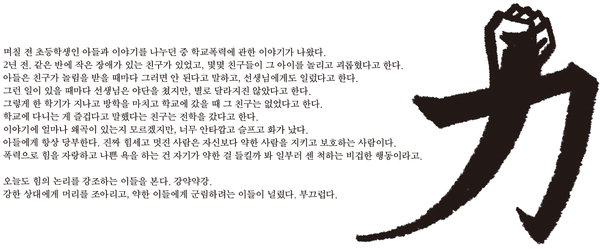 며칠 전 초등학생인 아들과 이야기를 나누던 중 학교폭력에 관한 이야기가 나왔다.
2년 전, 같은 반에 작은 장애가 있는 친구가 있었고, 몇몇이 그 아이를 놀리고 괴롭혔다고 한다.
아들은 친구가 놀림을 받을 때마다 그러면 안 된다고 말하고, 선생님에게도 일렀다고 한다.
그런 일이 있을 때마다 선생님은 야단을 쳤지만, 별로 달라진진 않았다고 한다.
그렇게 한 학기가 지나고 방학을 마치고 학교에 갔을 때 그 친구는 없었다고 한다.
학교에 다니는 게 즐겁다고 말했다는 친구는 전학을 갔다고 한다.
이야기에 얼마나 왜곡이 있는지 모르겠지만, 너무 안타깝고 슬프고 화가 났다.
아들에게 항상 당부한다. 진짜 힘세고 멋진 사람은 자신보다 약한 사람을 지키고 보호하는 사람이다.
폭력으로 힘을 자랑하고 나쁜 욕을 하는 건 자기가 약한 걸 들킬까 봐 일부러 센 척하는 비겁한 행동이라고.
오늘도 힘의 논리를 강조하는 이들을 본다. 강약약강.
강한 상대에게 머리를 조아리고, 약한 이들에게 군림하려는 이들이 널렸다. 부끄럽다.
力